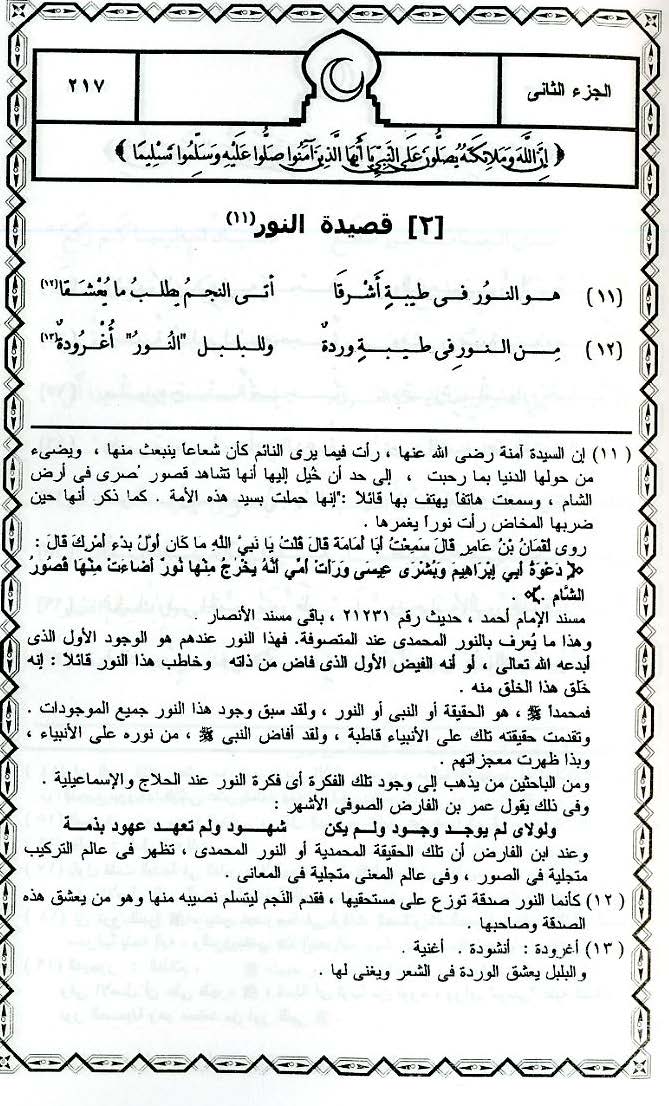 الجزء الثانى
٢١٧
﴿ إِنَّ اللَّهَ وَمَلَائِكَتَهُ يُصَلُّونَ عَلَى النَّبِيِّ يَا أَيُّهَا الَّذِينَ آمَنُوا صَلُّوا عَلَيْهِ وَسَلِّمُوا تَسْلِيمًا ﴾
[٢] قصيدة النور(١١)
(١١) هـو النورُ فى طيبةٍ أَشْرقَا أتـى النجمُ يطلبُ ما يُعْشَقا(١٢)
(١٢) مِـن النـورِ فى طـيـبـةٍ وردةٌ وللبلبـل "النُّورُ" أُغْرُودةٌ(١٣)
(١١) إن السيدة آمنة رضى الله عنها ، رأت فيما يرى النائم كأن شعاعاً ينبعث منها ، ويضىء
من حولها الدنيا بما رحبت ، إلى حد أن خُيل إليها أنها تشاهد قصور بُصرى فى أرض
الشام ، وسمعت هاتفاً يهتف بها قائلاً :"إنها حملت بسيد هذه الأمة . كما ذكر أنها حين
ضربها المخاض رأت نوراً يغمرها .
روى لُقْمَانُ بْنُ عَامِرٍ قَالَ سَمِعْتُ أَبَا أُمَامَةَ قَالَ قُلْتُ يَا نَبِيَّ اللَّهِ مَا كَانَ أَوَّلُ بَدْءِ أَمْرِكَ قَالَ :
﴿ دَعْوَةُ أَبِي إِبْرَاهِيمَ وَبُشْرَى عِيسَى وَرَأَتْ أُمِّي أَنَّهُ يَخْرُجُ مِنْهَا نُورٌ أَضَاءَتْ مِنْهَا قُصُورُ
الشَّامِ .﴾ .
مسند الإمام أحمد ، حديث رقم ٢١٢٣١ ، باقى مسند الأنصار .
وهذا ما يُعرف بالنور المحمدى عند المتصوفة. فهذا النور عندهم هو الوجود الأول الذى
أبدعه الله تعالى ، أو أنه الفيض الأول الذى فاض من ذاته وخاطب هذا النور قائلاً : إنه
خَلَق هذا الخلق منه .
فمحمداً ﷺ ، هو الحقيقة أو النبى أو النور ، ولقد سبق وجود هذا النور جميع الموجودات .
وتقدمت حقيقته تلك على الأنبياء قاطبة ، ولقد أفاض النبى ﷺ ، من نوره على الأنبياء ،
وبذا ظهرت معجزاتهم .
ومن الباحثين من يذهب إلى وجود تلك الفكرة أى فكرة النور عند الحلاج والإسماعيلية .
وفى ذلك يقول عمر بن الفارض الصوفى الأشهر :
ولولاى لم يوجـد وجـود ولم يكن شهـود ولم تعهد عهود بذمة
وعند ابن الفارض أن تلك الحقيقة المحمدية أو النور المحمدى ، تظهر فى عالم التركيب
متجلية فى الصور ، وفى عالم المعنى متجلية فى المعانى .
(١٢) كأنما النور صدقة توزع على مستحقيها ، فقدم النَجم ليتسلم نصيبه منها وهو من يعشق هذه
الصدقة وصاحبها .
(١٣) أغرودة : أنشودة . أغنية .
والبلبل يعشق الوردة فى الشعر ويغنى لها .